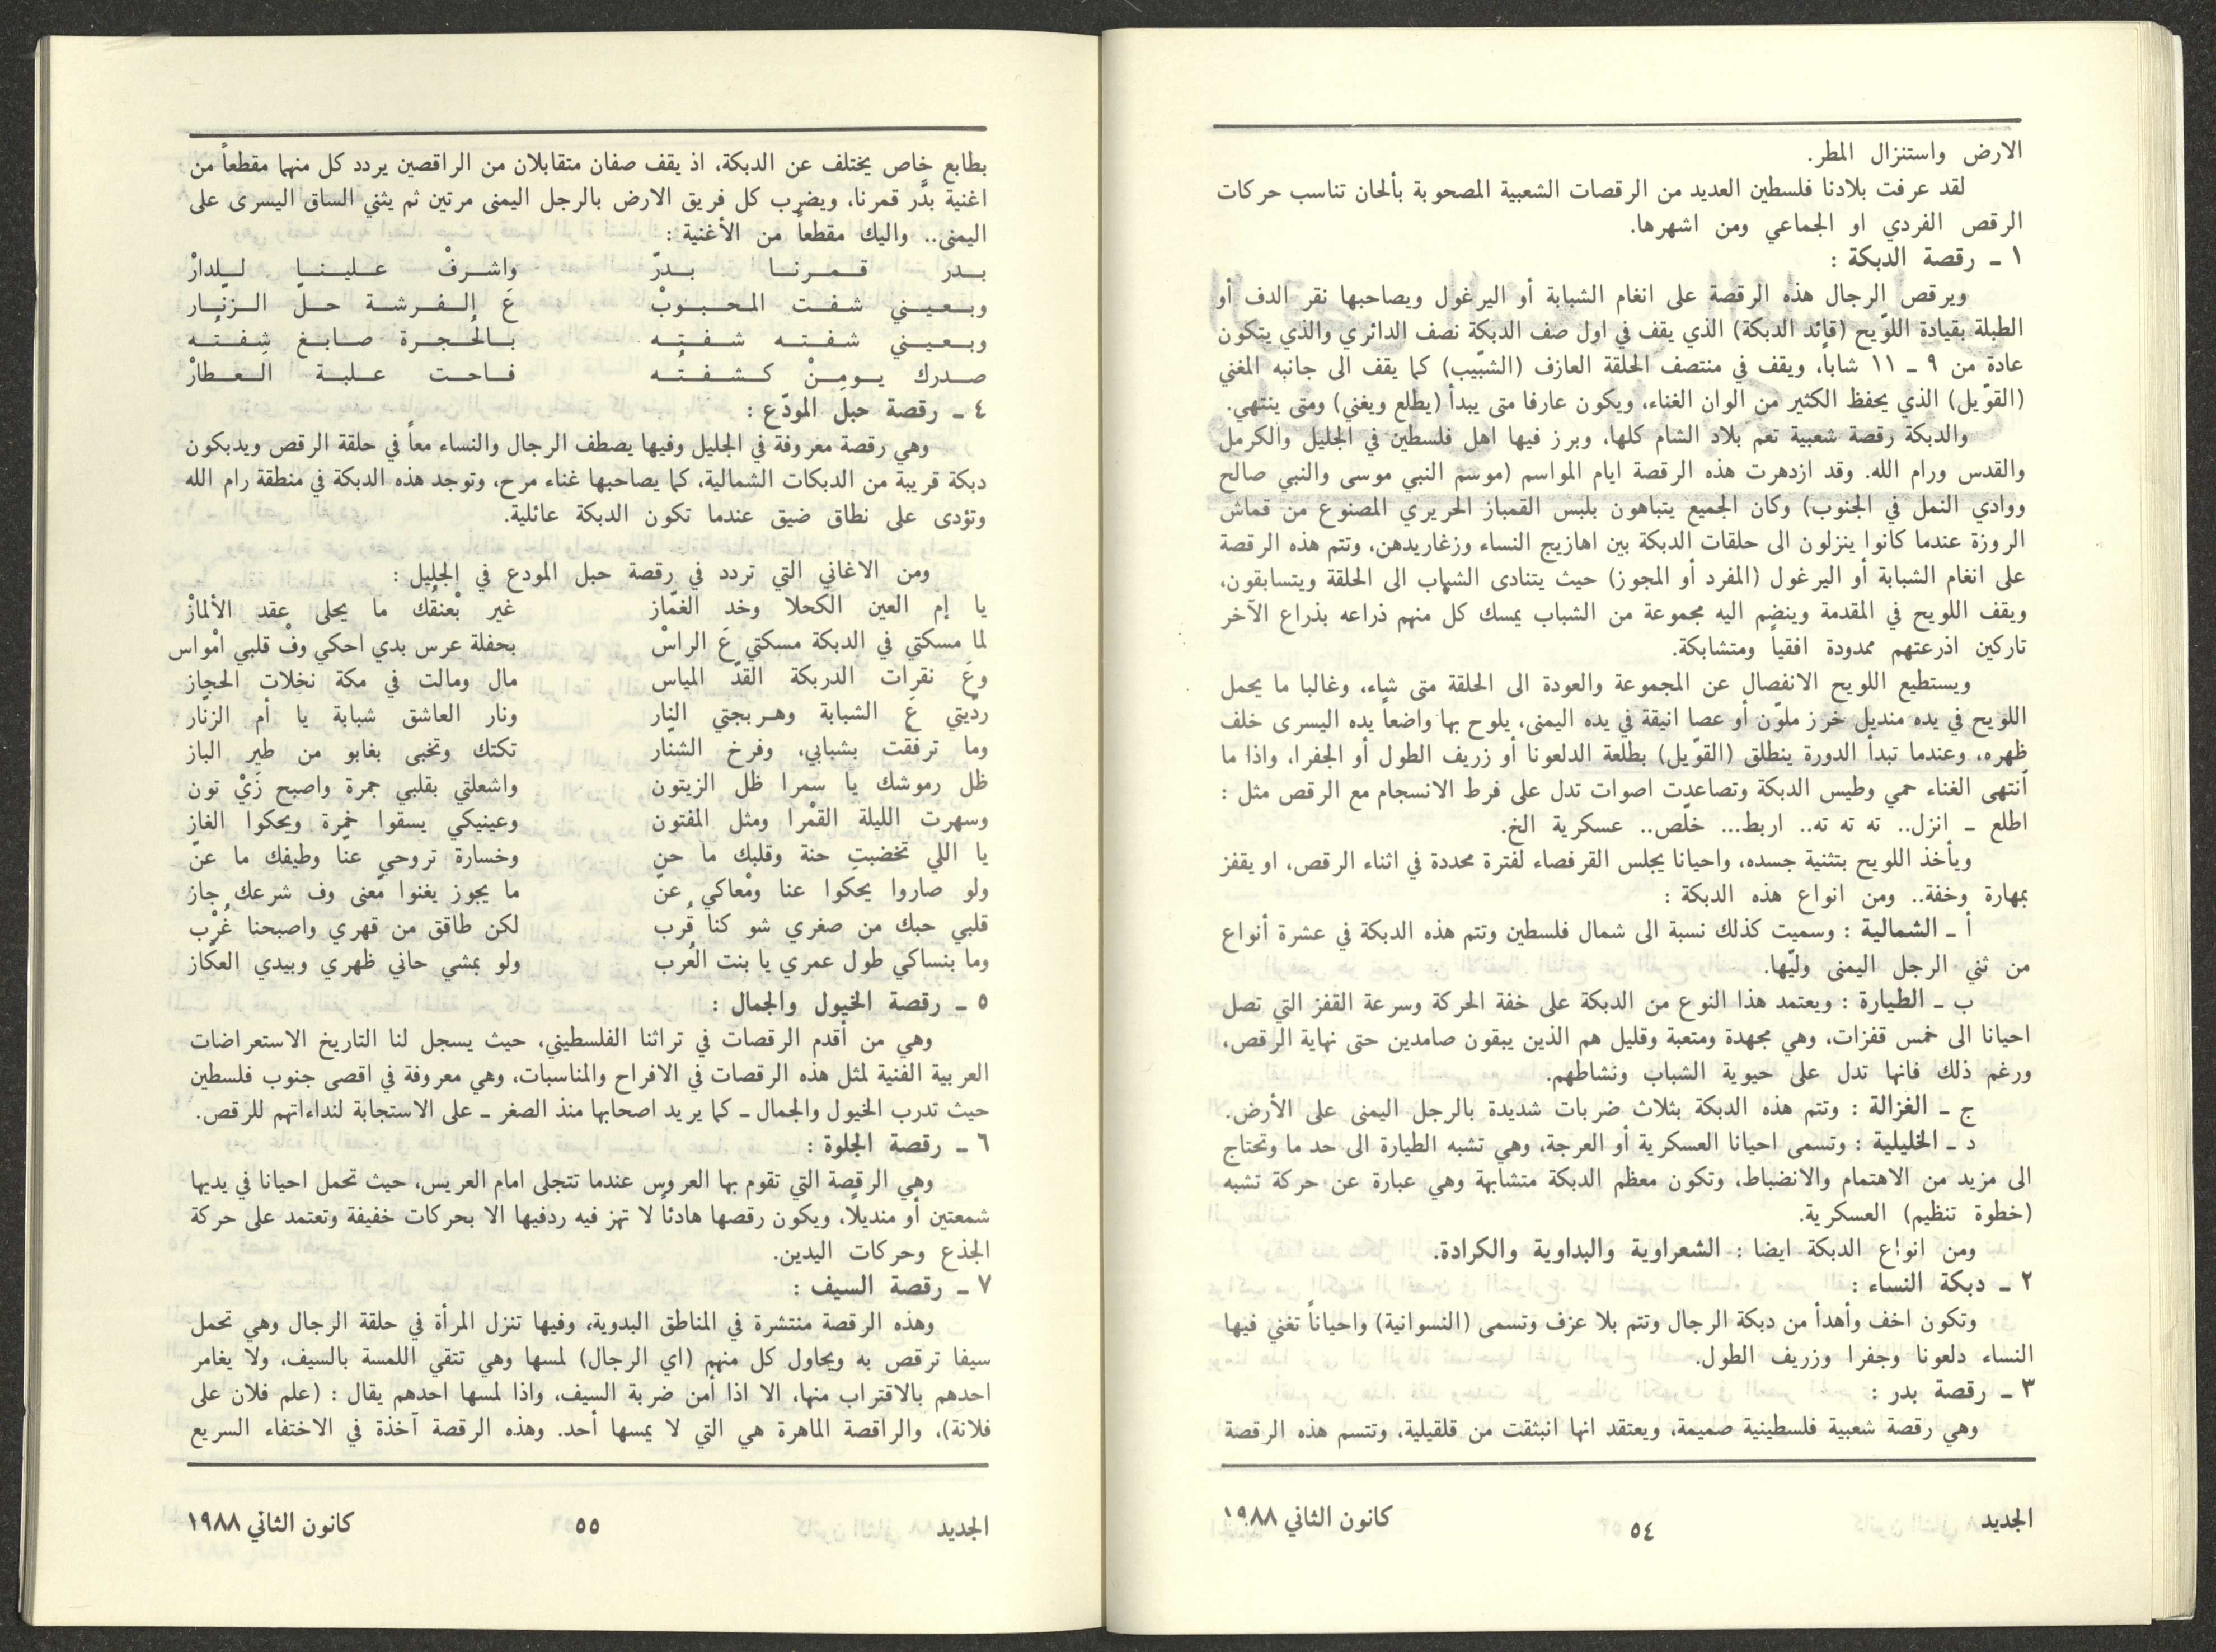 الارض واستنزال المطر.
لقد عرفت بلادنا فلسطين العديد من الرقصات الشعبية المصحوبة بألحان تناسب حركات
الرقص الفردي او الجماعي ومن اشهرها.
١ ـ رقصة الدبكة :
ويرقص الرجال هذه الرقصة على انغام الشبابة أو اليرغول ويصاحبها نقر الدف أو
الطبلة بقيادة اللوّيح (قائد الدبكة) الذي يقف في اول صف الدبكة نصف الدائري والذي يتكون
عادة من ٩ ـ ١١ شاباً، ويقف في منتصف الحلقة العازف (الشبّيب) كما يقف الى جانبه المغني
(القوّيل) الذي يحفظ الكثير من الوان الغناء، ويكون عارفا متى يبدأ (يطلع ويغني) ومتى ينتهي.
والدبكة رقصة شعبية تعم بلاد الشام كلها، وبرز فيها اهل فلسطين في الجليل والكرمل
والقدس ورام الله. وقد ازدهرت هذه الرقصة ايام المواسم (موسم النبي موسى والنبي صالح
ووادي النمل في الجنوب) وكان الجميع يتباهون بلبس القمباز الحريري المصنوع من قماش
الروزة عندما كانوا ينزلون الى حلقات الدبكة بين اهازيج النساء وزغاريدهن، وتتم هذه الرقصة
على انغام الشبابة أو اليرغول (المفرد أو المجوز) حيث يتنادى الشباب الى الحلقة ويتسابقون،
ويقف اللويح في المقدمة وينضم اليه مجموعة من الشباب يمسك كل منهم ذراعه بذراع الآخر
تاركين اذرعتهم ممدودة افقياً ومتشابكة.
ويستطيع اللويح الانفصال عن المجموعة والعودة الى الحلقة متى شاء، وغالبا ما يحمل
اللويح في يده منديل خرز ملوّن أو عصا انيقة في يده اليمنى، يلوح بها واضعاً يده اليسرى خلف
ظهره، وعندما تبدأ الدورة ينطلق (القوّيل) بطلعة الدلعونا أو زريف الطول أو الجفرا، واذا ما
أنتهى الغناء حمي وطيس الدبكة وتصاعدت اصوات تدل على فرط الانسجام مع الرقص مثل :
اطلع ـ انزل.. ته ته ته.. اربط... خلّص.. عسكرية الخ.
ويأخذ اللويح بتثنية جسده، واحيانا يجلس القرفصاء لفترة محددة في اثناء الرقص، او يقفز
بمهارة وخفة.. ومن انواع هذه الدبكة :
أ ـ الشمالية : وسميت كذلك نسبة الى شمال فلسطين وتتم هذه الدبكة في عشرة أنواع
من ثني الرجل اليمنى وليّها.
ب ـ الطيارة : ويعتمد هذا النوع من الدبكة على خفة الحركة وسرعة القفز التي تصل
احيانا الى خمس قفزات، وهي مجهدة ومتعبة وقليل هم الذين يبقون صامدين حتى نهاية الرقص،
ورغم ذلك فانها تدل على حيوية الشباب ونشاطهم.
ج ـ الغزالة : وتتم هذه الدبكة بثلاث ضربات شديدة بالرجل اليمنى على الأرض.
د ـ الخليلية : وتسمى احيانا العسكرية أو العرجة، وهي تشبه الطيارة الى حد ما وتحتاج
الى مزيد من الاهتمام والانضباط، وتكون معظم الدبكة متشابهة وهي عبارة عن حركة تشبه
(خطوة تنظيم) العسكرية.
ومن انواع الدبكة ايضا : الشعراوية والبداوية والكرادة.
٢ ـ دبكة النساء :
وتكون اخف وأهدأ من دبكة الرجال وتتم بلا عزف وتسمى (النسوانية) واحياناً تغني فيها
النساء دلعونا وجفرا وزريف الطول.
٣ ـ رقصة بدر :
وهي رقصة شعبية فلسطينية صميمة، ويعتقد انها انبثقت من قلقيلية، وتتسم هذه الرقصة
الجديد ٥٤ كانون الثاني ١٩٨٨
بطابع خاص يختلف عن الدبكة، اذ يقف صفان متقابلان من الراقصين يردد كل منهما مقطعاً من
اغنية بدّر قمرنا، ويضرب كل فريق الارض بالرجل اليمنى مرتين ثم يثني الساق اليسرى على
اليمنى.. واليك مقطعاً من الأغنية :
بدر قمرنا بدرّ واشرفْ علينا لـلدارْ
وبعيني شفت المحبوبْ عَ الفرشة حلّ الزنّار
وبعيني شفته شفتِه بالحُجرة صابغ شِفتُه
صدرك يومِنْ كشفتُه فاحت علبة العطارْ
٤ ـ رقصة حبل المودّع :
وهي رقصة معروفة في الجليل وفيها يصطف الرجال والنساء معاً في حلقة الرقص ويدبكون
دبكة قريبة من الدبكات الشمالية، كما يصاحبها غناء مرح، وتوجد هذه الدبكة في منطقة رام الله
وتؤدى على نطاق ضيق عندما تكون الدبكة عائلية.
ومن الاغاني التي تردد في رقصة حبل المودع في الجليل :
يا إم العين الكحلا وخد الغمّاز غير بْعنقُك ما يحلى عقد الألمازْ
لما مسكتي في الدبكة مسكتي عَ الراسْ بحفلة عرس بدي احكي وفْ قلبي امْواس
وعَ نقرات الدربكة القدّ المياس مال ومالت في مكة نخلات الحجاز
ردّيتي عَ الشبابة وهربجتي النار ونار العاشق شبابة يا أم الزنّار
وما ترفقت بشبابي، وفرخ الشنّار تكتك وتخبى بغابو من طير الباز
ظل رموشك يا سمرا ظل الزيتون واشعلتي بقلبي جمرة واصبح زَيْ تون
وسهرت الليلة القمْرا ومثل المفتون وعينيكي يسقوا خمرة ويحكوا الغاز
يا اللي تخضبتِ حنة وقلبك ما حن وخسارة تروحي عنا وطيفك ما عنّ
ولو صاروا يحكوا عنا ومْعاكي عنّ ما يجوز يغنوا مّعنى وف شرعك جاز
قلبي حبك من صغري شو كنا قُرب لكن طاقق من قهري واصبحنا غُرْب
وما بنساكي طول عمري يا بنت العُرب ولو بمشي حاني ظهري وبيدي العكّاز
٥ ـ رقصة الخيول والجمال :
وهي من أقدم الرقصات في تراثنا الفلسطيني، حيث يسجل لنا التاريخ الاستعراضات
العربية الفنية لمثل هذه الرقصات في الافراح والمناسبات، وهي معروفة في اقصى جنوب فلسطين
حيث تدرب الخيول والجمال ـ كما يريد اصحابها منذ الصغر ـ على الاستجابة لنداءاتهم للرقص.
٦ ـ رقصة الجلوة :
وهي الرقصة التي تقوم بها العروس عندما تتجلى امام العريس، حيث تحمل احيانا في يديها
شمعتين أو منديلاً، ويكون رقصها هادئاً لا تهز فيه ردفيها الا بحركات خفيفة وتعتمد على حركة
الجذع وحركات اليدين.
٧ ـ رقصة السيف :
وهذه الرقصة منتشرة في المناطق البدوية، وفيها تنزل المرأة في حلقة الرجال وهي تحمل
سيفا ترقص به ويحاول كل منهم (اي الرجال) لمسها وهي تتقي اللمسة بالسيف، ولا يغامر
احدهم بالاقتراب منها، الا اذا أمن ضربة السيف، واذا لمسها احدهم يقال : (علم فلان على
فلانة)، والراقصة الماهرة هي التي لا يمسها أحد. وهذه الرقصة آخذة في الاختفاء السريع
الجديد ٥٥ كانون الثاني ١٩٨٨